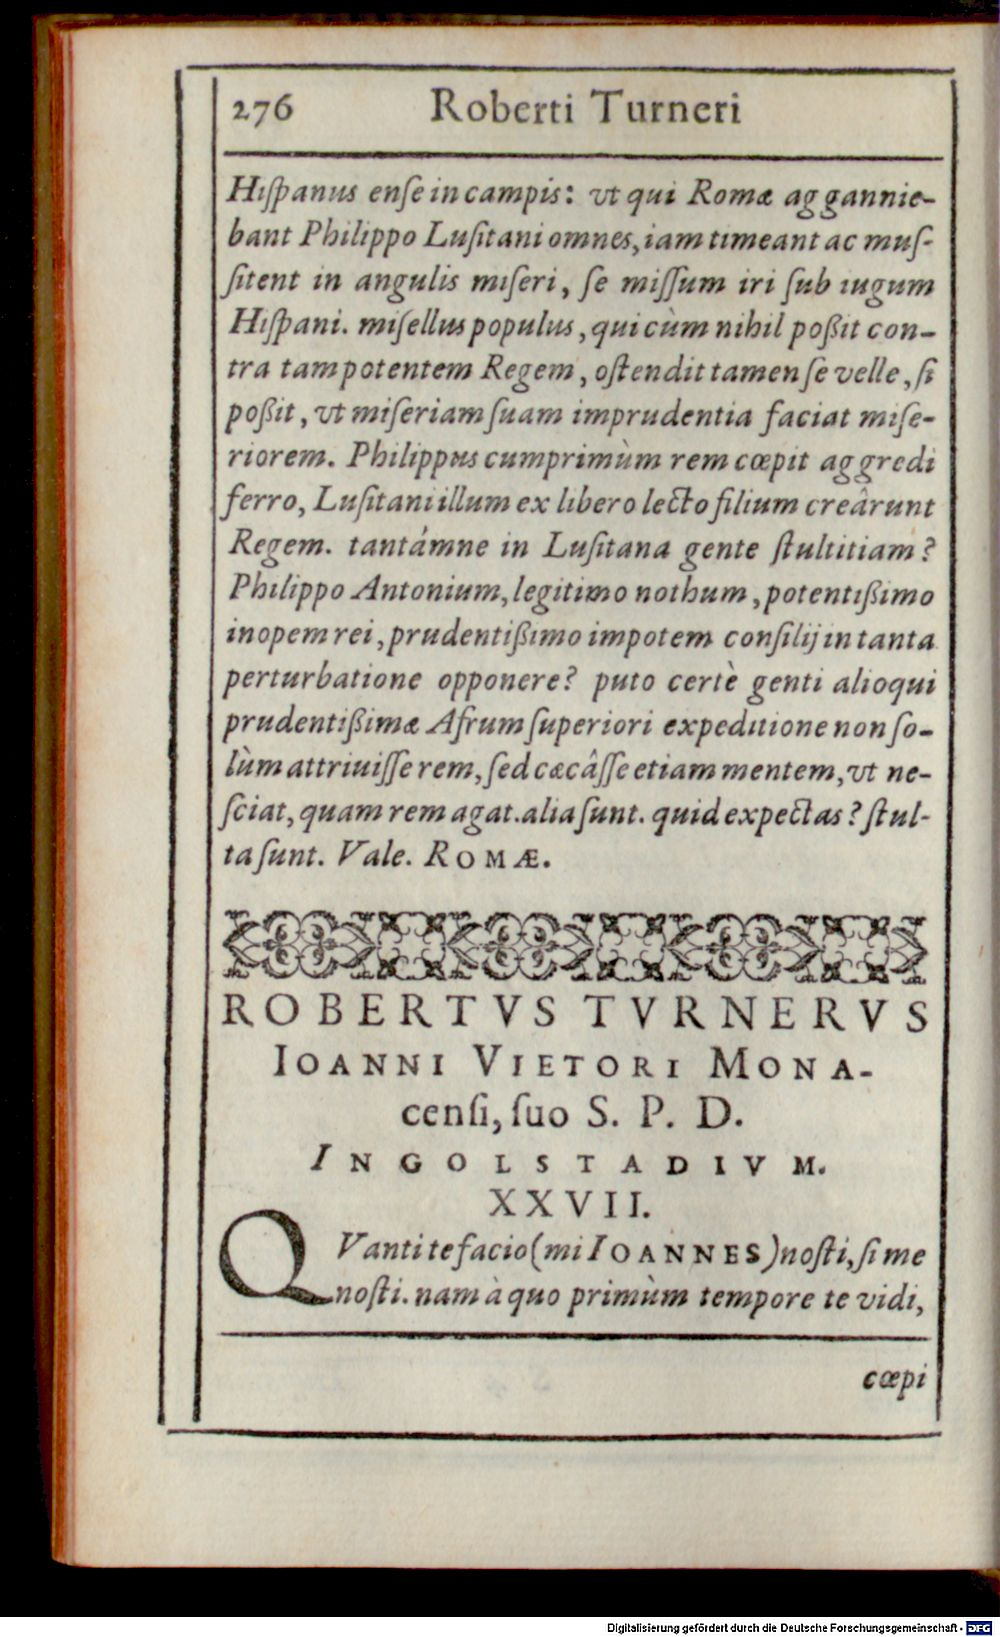 276 Roberti Turneri
Hiſpanus enſe in campis: vt qui Romæ aggannie-
bant Philippo Luſitani omnes, iam timeant ac muſ-
ſitent in angulis miſeri, ſe miſſum iri ſub iugum
Hiſpani. miſellus populus, qui cùm nihil poßit con-
tra tam potentem Regem, oſtendit tamen ſe velle, ſi
poßit, vt miſeriam ſuam imprudentia faciat miſe-
riorem. Philippus cumprimùm rem cœpit aggredi
ferro, Luſitani illum ex libero lecto filium creârunt
Regem. tantámne in Luſitana gente ſtultitiam?
Philippo Antonium, legitimo nothum, potentißimo
inopem rei, prudentißimo impotem conſilij in tanta
perturbatione opponere? puto certè genti alioqui
prudentißimæ Afrum ſuperiori expeditione non ſo-
lùm attriuiſſe rem, ſed cæcâſſe etiam mentem, vt ne-
ſciat, quam rem agat. alia ſunt. quid expectas? ſtul-
ta ſunt. Vale. ROMÆ.
ROBERTVS TVRNERVS
IOANNI VIETORI MONA-
cenſi, ſuo S. P. D.
INGOLSTADIVM.
XXVII.
QVanti te facio (mi IOANNES) noſti, ſi me
noſti. nam à quo primùm tempore te vidi,
cœpi
Digitalisierung gefördert durch die Deutsche Forschungsgemeinschaft - DFG